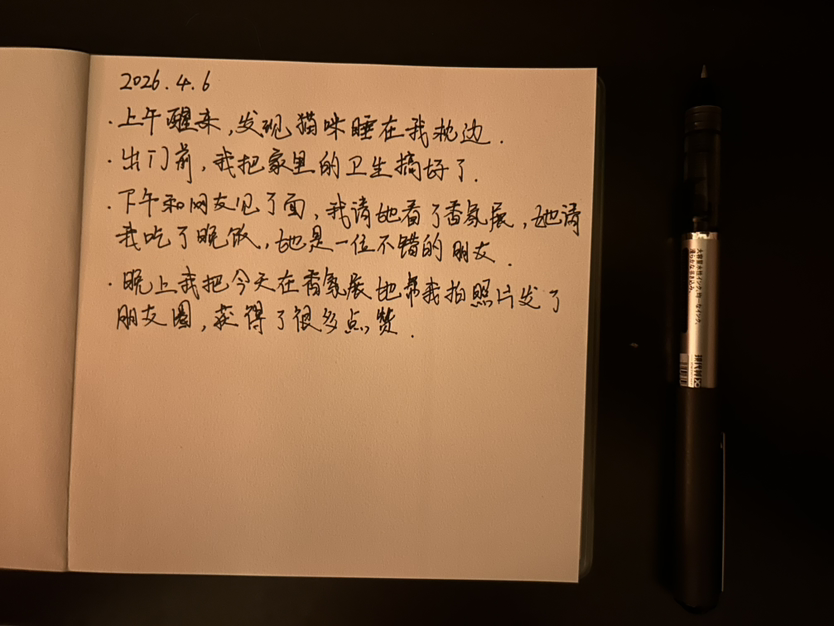 2026.4.6
·上午醒来,发现猫咪睡在我枕边.
·出门前,我把家里的卫生搞好了.
·下午和网友见了面,我请她看了香氛展,她请
我吃了晚饭,她是一位不错的朋友.
·晚上我把今天在香氛展她帮我拍照片发了
朋友圈,获得了很多点赞.